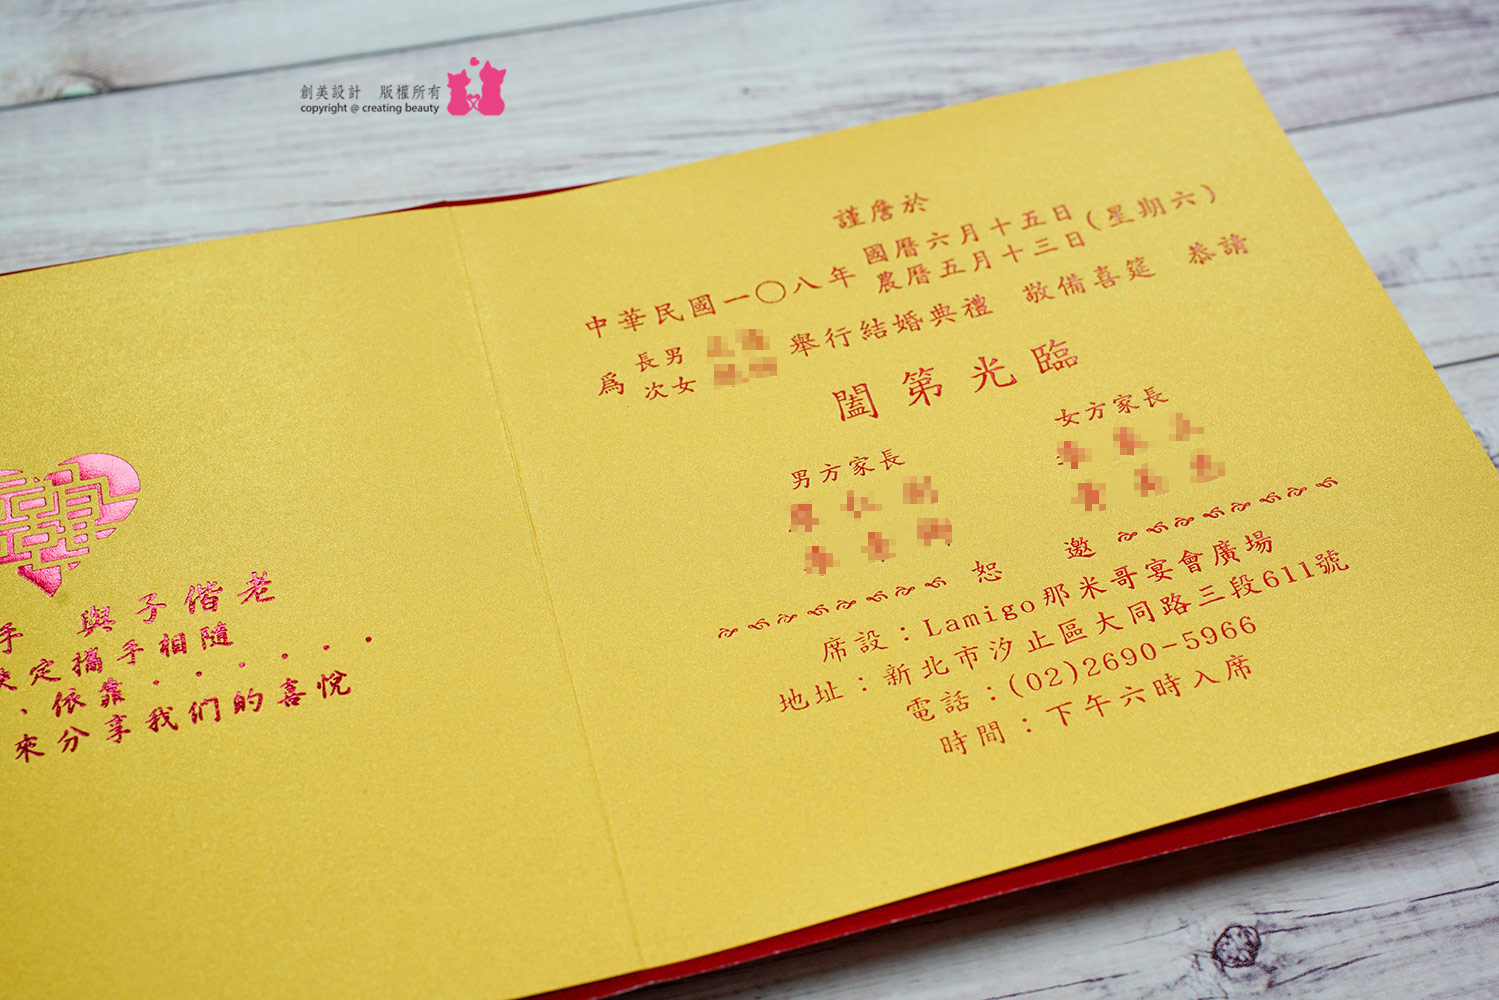 創美設計　版權所有
copyright @ creating beauty
手　與子偕老
決定攜手相隨
、依靠．．．．．．
來分享我们的喜悅
謹詹於
中華民國一〇八年 國曆六月十五日 農曆五月十三日 (星期六)
為 長男 次女 舉行結婚典禮　敬備喜筵　恭請
闔第光臨
男方家長
女方家長
恕　邀
席設：Lamigo那米哥宴會廣場
地址：新北市汐止區大同路三段611號
電話：(02)2690-5966
時間：下午六時入席